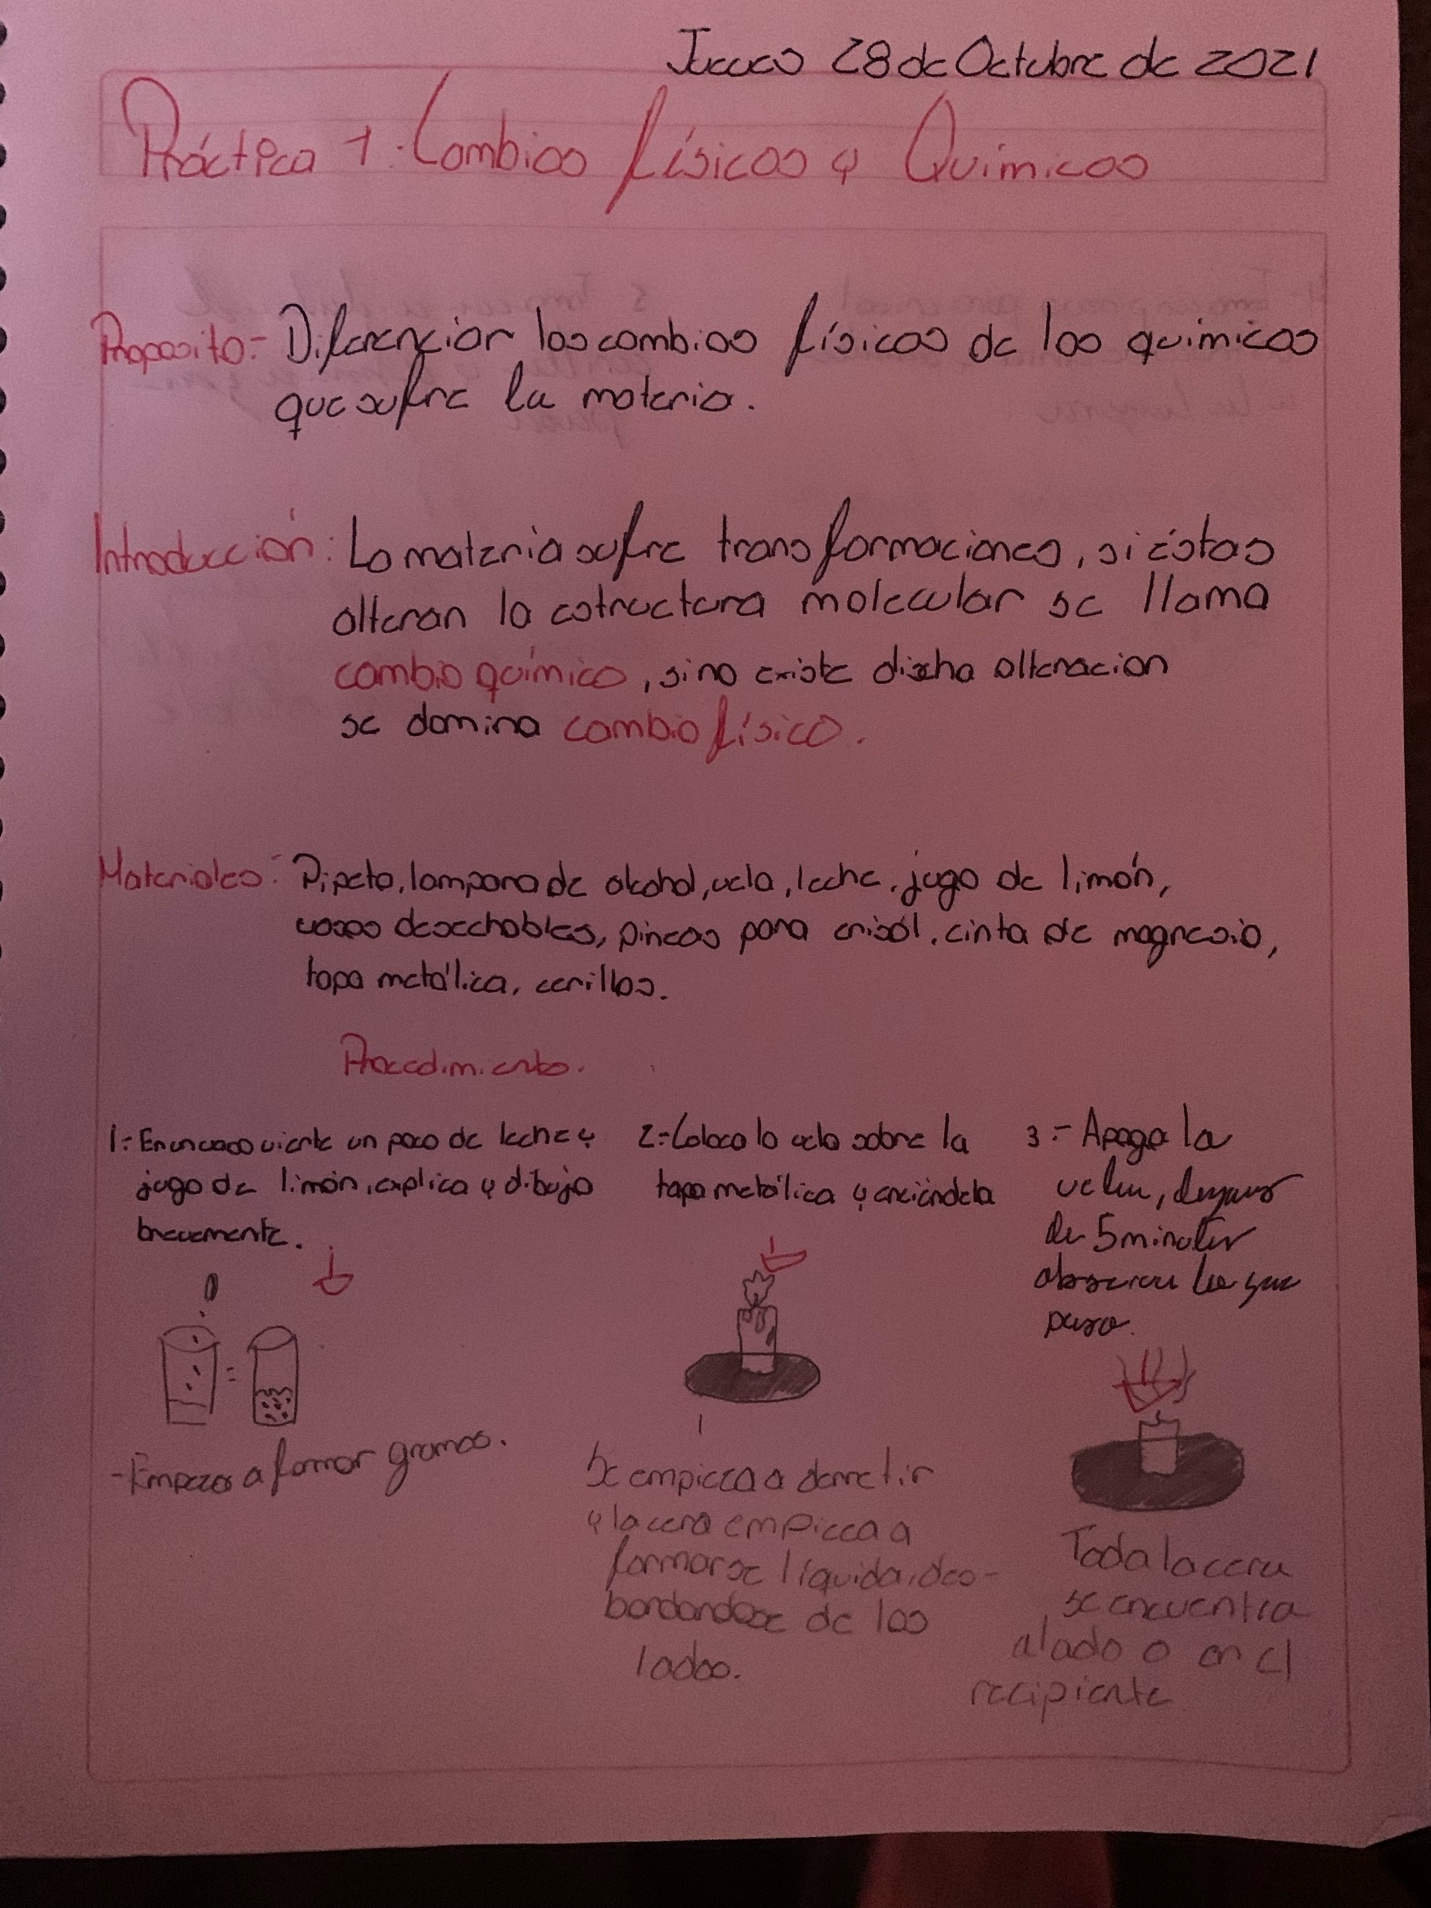 Jueves 28 de Octubre de 2021
Práctica 1: Cambios físicos y Químicos
Proposito:- Diferenciar los cambios físicos de los químicos
que sufre la materia.
Introducción: La materia sufre transformaciones, si éstas
alteran la estructura molecular se llama
cambio químico, si no existe dicha alteracion
se domina cambio físico.
Materiales: Pipeta, lampara de alcohol, vela, leche, jugo de limón,
vasos desechables, pinzas para crisól, cinta de magnesio,
tapa metálica, cerillos.
Procedimiento.
1:- En un vaso vierte un poco de leche y
jugo de limón, explica y dibuja
brevemente.
- Empezar a formar grumos.
2:- Coloca la vela sobre la
tapa metálica y enciéndela
Se empieza a derretir
y la cera empieza a
formarse líquida, des-
bordandose de los
lados.
3:- Apaga la
vela, despues
de 5 minutos
observa lo que
paso.
Toda la cera
se encuentra
alado o en el
recipiente